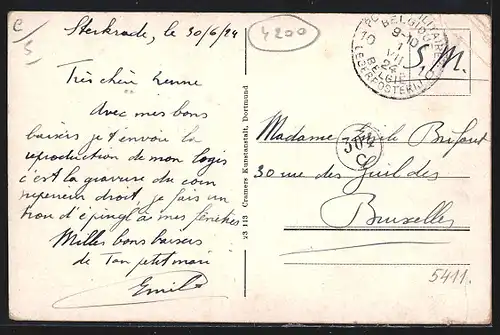 C
5
Sterkrade, le 30/6/24
4200
POSTES MILITAIRES
BELGIQUE
9-10
10 1 10
VII
24
BELGIË
LEGERPOSTERIJ
S.M.
Très chère
Avec mes bons
baisers je t'envoie la
reproduction de mon logis
c'est la gravure du coin
supérieur droit, je fais un
trou d'épingle à mes fenêtres
Milles bons baisers
de Ton petit mari
Emile
23 113 Cramers Kunstanstalt, Dortmund
Madame Emile Brifaut
304
C
30 rue des
Bruxelles
5411.